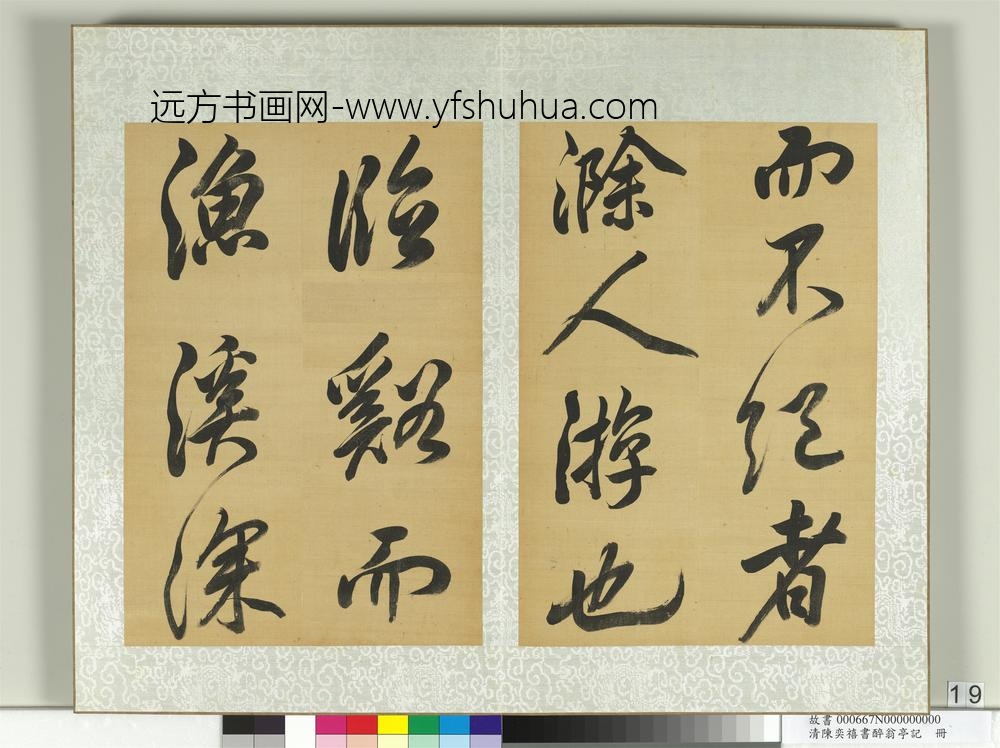 远方书画网-www.yfshuhua.com
而不絕者
滁人游也
臨谿而
漁溪深
19
故書 000667N000000000
清陳奕禧書醉翁亭記 冊